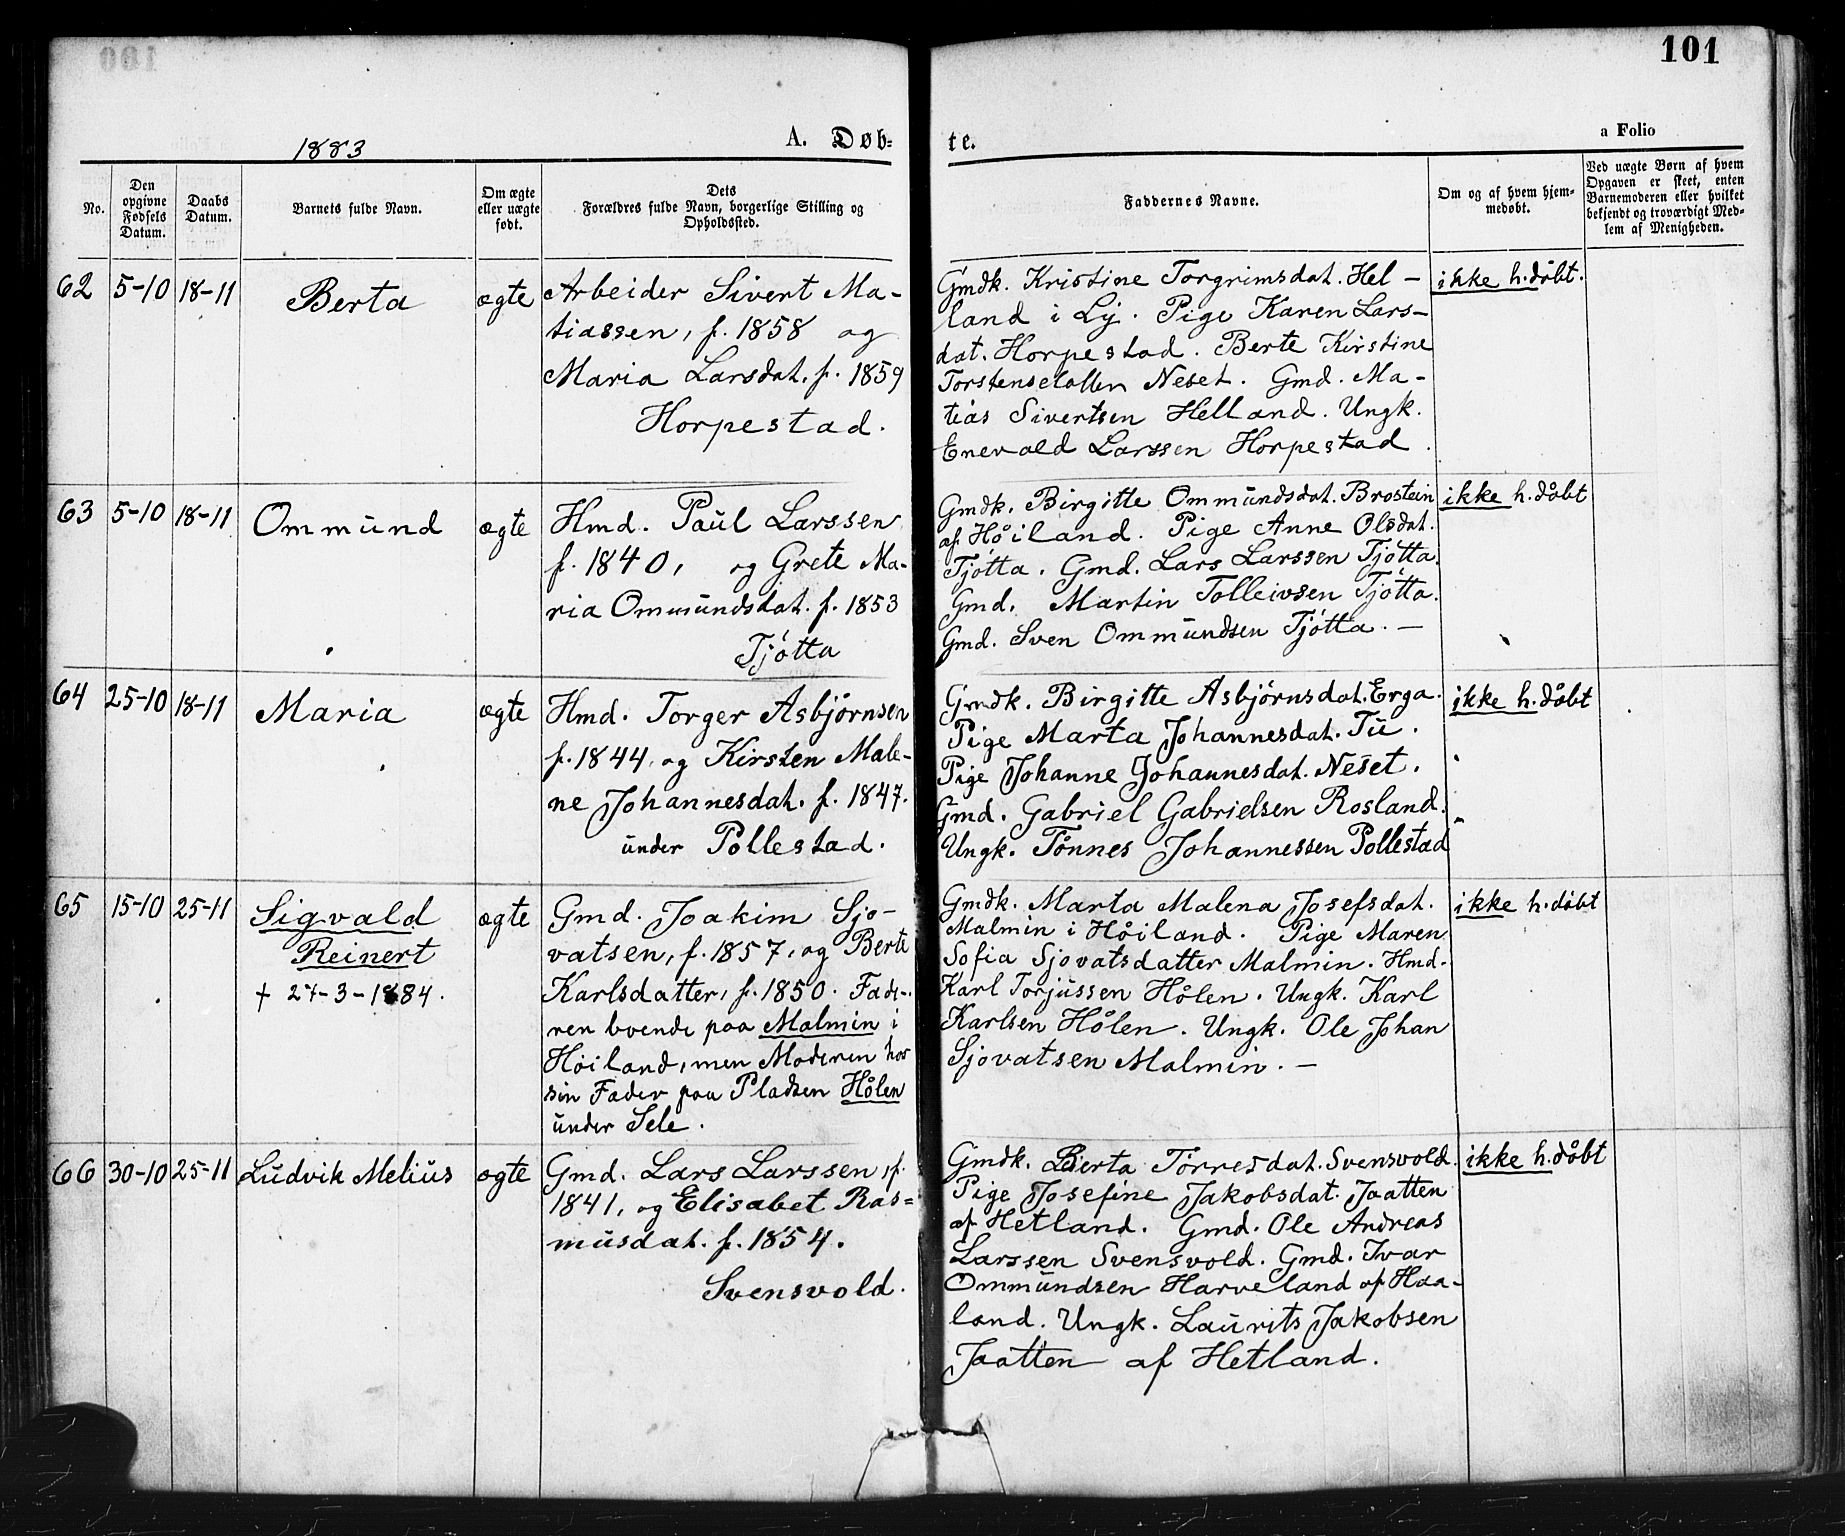 101
1883
A. Døb-
te.
a Folio
No.
Den
opgivne
Fødsels
Datum.
Daabs
Datum.
Barnets fulde Navn.
Om ægte
eller uægte
født.
Dets
Forældres fulde Navn, borgerlige Stilling og
Opholdssted.
Faddernes Navne.
Om og af hvem hjem-
medøbt.
Ved uægte Børn af hvem
Opgaven er skeet, enten
Barnemoderen eller hvilket
bekjendt og troværdigt Med-
lem af Menigheden.
62 5-10 18-11
Berta
ægte
Arbeider Sivert Ma-
tiassen, f. 1858 og
Maria Larsdat. f. 1859
Horpestad.
Gmdk. Kristine Torgrimsdat. Hel-
land i Ly. Pige Karen Lars-
dat. Horpestad. Berte Kirstine
Torstensdatter Neset. Gmd. Ma-
tias Sivertsen Helland. Ungk.
Enevald Larssen Horpestad.
ikke h.døbt.
63 5-10 18-11
Ommund
ægte
Hmd. Paul Larssen
f. 1840, og Grete Ma-
ria Ommundsdat. f. 1853
Tjøtta
Gmdk. Birgitte Ommundsdat. Brostein
af Høiland. Pige Anne Olsdat.
Tjøtta. Gmd. Lars Larssen Tjøtta.
Gmd. Martin Tolleivsen Tjøtta.
Gmd. Sven Ommundsen Tjøtta. —
ikke h.døbt
64 25-10 18-11
Maria
ægte
Hmd. Torger Asbjørnsen
f. 1844, og Kirsten Male-
ne Johannesdat. f. 1847.
under Pollestad.
Gmdk. Birgitte Asbjørnsdat. Erga.
Pige Marta Johannesdat. Tu.
Pige Johanne Johannesdat. Neset.
Gmd. Gabriel Gabrielsen Rosland.
Ungk. Tønnes Johannessen Pollestad
ikke h.døbt
65 15-10 25-11
Sigvald
Reinert
† 27-3-1884.
ægte
Gmd. Joakim Sjo-
vatsen, f. 1857, og Berte
Karlsdatter, f. 1850. Fade-
ren boende paa Malmin i
Høiland, men Moderen hos
sin Fader paa Pladsen Hålen
under Sele.
Gmdk. Marta Malena Josefsdat.
Malmin i Høiland. Pige Maren
Sofia Sjovatsdatter Malmin. Hmd.
Karl Torjussen Hålen. Ungk. Karl
Karlsen Hålen. Ungk. Ole Johan
Sjovatsen Malmin. —
ikke h.døbt
66 30-10 25-11
Ludvik Melius
ægte
Gmd. Lars Larssen, f.
1841, og Elisabet Ras-
musdat. f. 1854.
Svensvold.
Gmdk. Berta Tørresdat. Svensvold.
Pige Josefine Jakobsdat. Jaatten
af Hetland. Gmd. Ole Andreas
Larssen Svensvold. Gmd. Ivar
Ommundsen Harveland af Haa-
land. Ungk. Laurits Jakobsen
Jaatten af Hetland.
ikke h.døbt